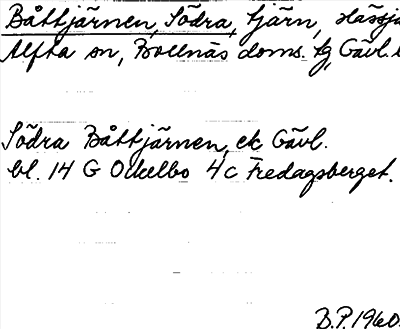 Båttjärnen, Södra, tjärn, Hässja
Alfta sn, Bollnäs doms. tg, Gävl. l
Södra Båttjärnen, ek Gävl.
bl. 14 G Ockelbo 4c Fredagsberget.
B.P. 1960.